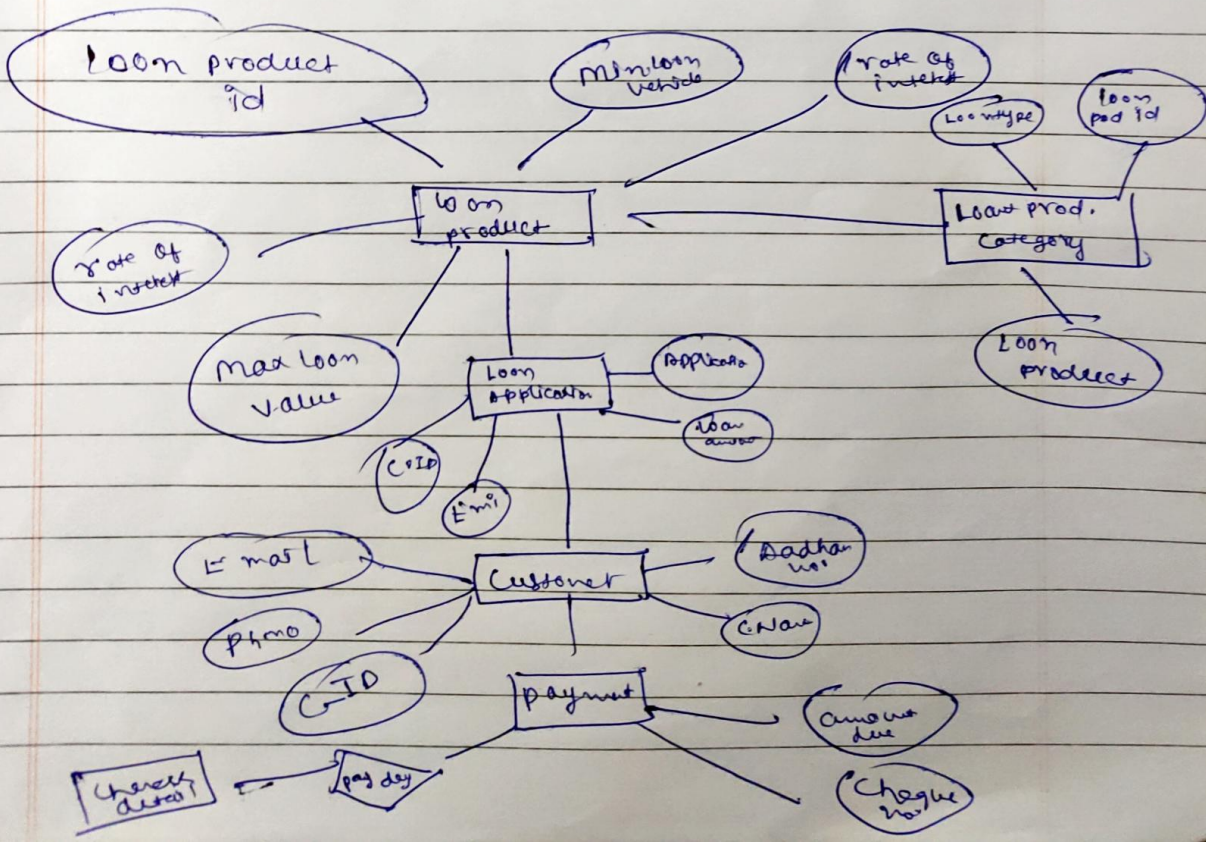 Loon product
id
Min loon
vehicle
rate of
interest
Loontype
loon
pod id
loon
product
Loan prod.
Category
rate of
interest
Max loon
value
Loon
Application
Applicatio
loan
C-ID
Emi
Loon
product
E-mail
Customer
Aadhar
no.
Phno
C.Name
C-ID
payment
amount
due
pay
detail
Cheque
no.